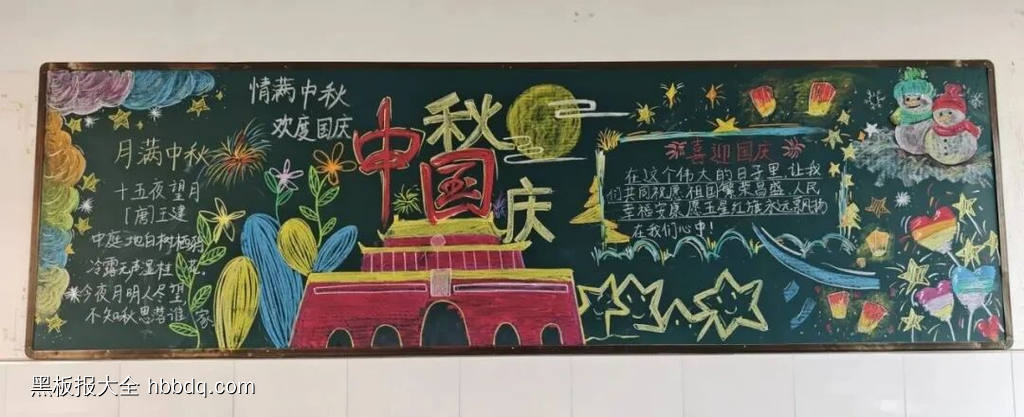 情满中秋
欢度国庆
中秋
国庆
月满中秋
十五夜望月
[唐]王建
中庭地白树栖鸦
冷露无声湿桂花.
今夜月明人尽望
不知秋思落谁家
喜迎国庆
在这个伟大的日子里,让我
们共同祝愿祖国繁荣昌盛.人民
幸福安康,愿五星红旗永远飘扬
在我们心中!
黑板报大全 hbbdq.com